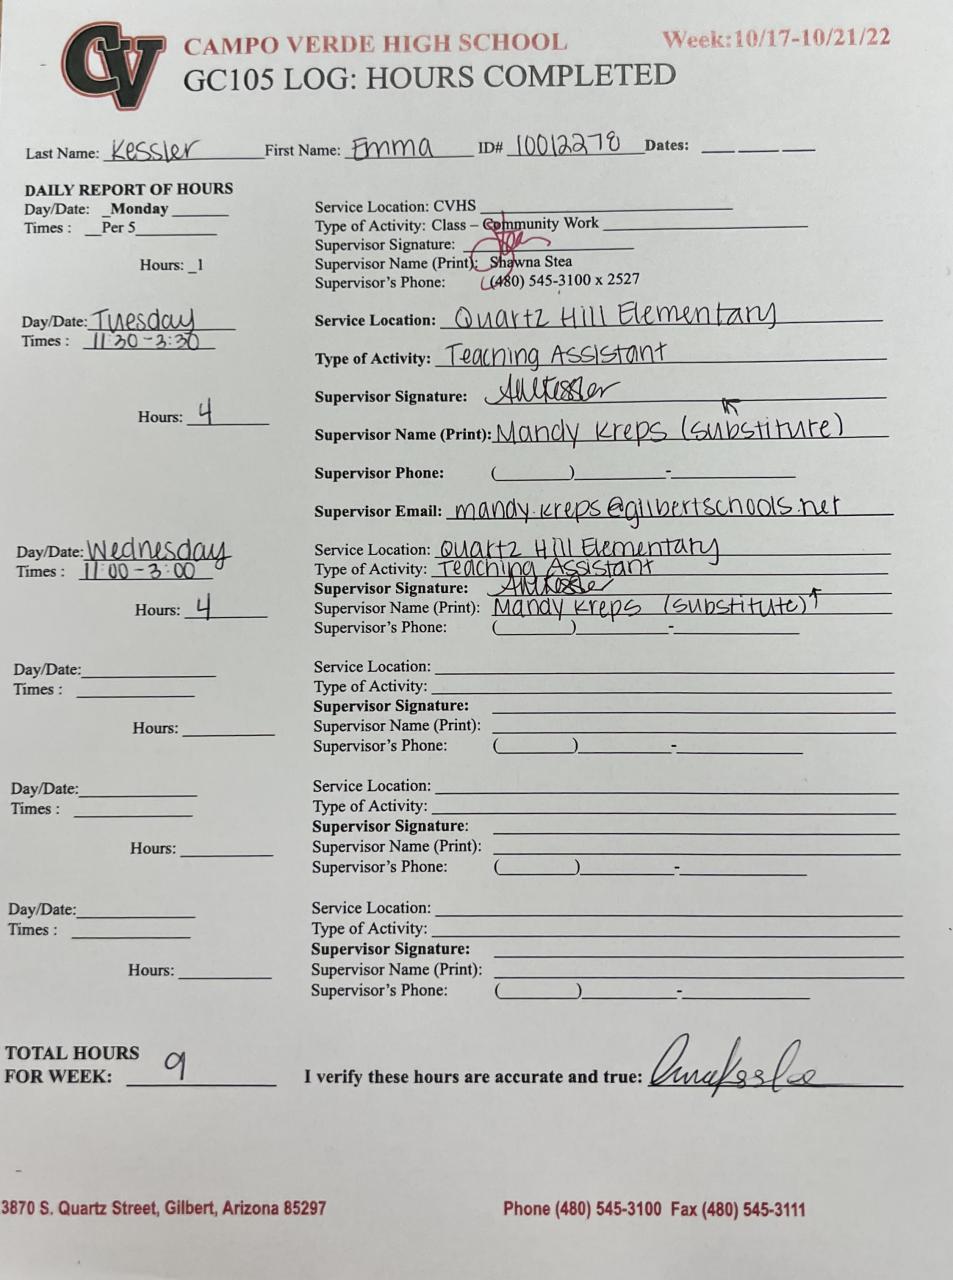 CV
CAMPO VERDE HIGH SCHOOL Week:10/17-10/21/22
GC105 LOG: HOURS COMPLETED
Last Name: Kessler First Name: Emma ID# 10012278 Dates: ___ ___ ___
DAILY REPORT OF HOURS
Day/Date: _Monday
Times : __Per 5
Hours: _1
Service Location: CVHS
Type of Activity: Class – Community Work
Supervisor Signature:
Supervisor Name (Print): Shawna Stea
Supervisor's Phone: (480) 545-3100 x 2527
Day/Date: Tuesday
Times : 11:30-3:30
Hours: 4
Service Location: Quartz Hill Elementary
Type of Activity: Teaching Assistant
Supervisor Signature:
Supervisor Name (Print): Mandy Kreps (substitute)
Supervisor Phone: (        )        -
Supervisor Email: mandy.kreps@gilbertschools.net
Day/Date: Wednesday
Times : 11:00-3:00
Hours: 4
Service Location: Quartz Hill Elementary
Type of Activity: Teaching Assistant
Supervisor Signature:
Supervisor Name (Print): Mandy Kreps (substitute)
Supervisor's Phone: (        )        -
Day/Date:
Times :
Hours:
Service Location:
Type of Activity:
Supervisor Signature:
Supervisor Name (Print):
Supervisor's Phone: (        )        -
Day/Date:
Times :
Hours:
Service Location:
Type of Activity:
Supervisor Signature:
Supervisor Name (Print):
Supervisor's Phone: (        )        -
Day/Date:
Times :
Hours:
Service Location:
Type of Activity:
Supervisor Signature:
Supervisor Name (Print):
Supervisor's Phone: (        )        -
TOTAL HOURS
FOR WEEK: 9 I verify these hours are accurate and true:
3870 S. Quartz Street, Gilbert, Arizona 85297 Phone (480) 545-3100 Fax (480) 545-3111